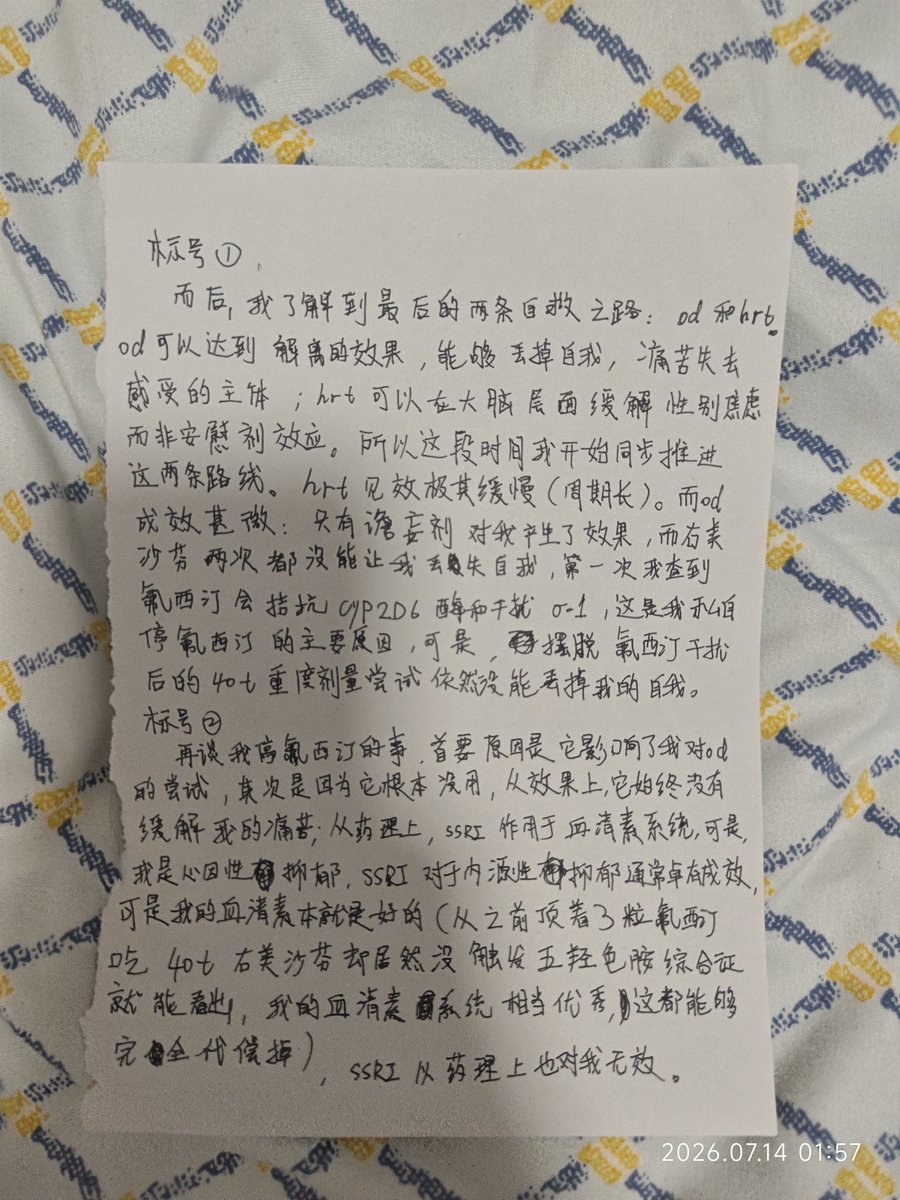 标号①
而后，我了解到最后的两条自救之路：od和hrt。
od可以达到解离的效果，能够丢掉自我，痛苦失去
感受的主体；hrt可以在大脑层面缓解性别焦虑
而非安慰剂效应。所以这段时间我开始同步推进
这两条路线。hrt见效极其缓慢（周期长）。而od
成效甚微：只有谵妄剂对我产生了效果，而右美
沙芬两次都没能让我丢失自我，第一次我查到
氟西汀会拮抗CYP2D6酶和干扰σ-1，这是我私自
停氟西汀的主要原因，可是，摆脱氟西汀干扰
后的40t重度剂量尝试依然没能丢掉我的自我。
标号②
再谈我停氟西汀的事，首要原因是它影响了我对od
的尝试，其次是因为它根本没用，从效果上，它始终没有
缓解我的痛苦；从药理上，SSRI作用于血清素系统，可是，
我是心因性抑郁，SSRI对于内源性抑郁通常卓有成效，
可是我的血清素本就是好的（从之前顶着3粒氟西汀
吃40t右美沙芬却居然没触发五羟色胺综合征
就能看出，我的血清素系统相当优秀，这都能够
完全代偿掉），SSRI从药理上也对我无效。
2026.07.14 01:57